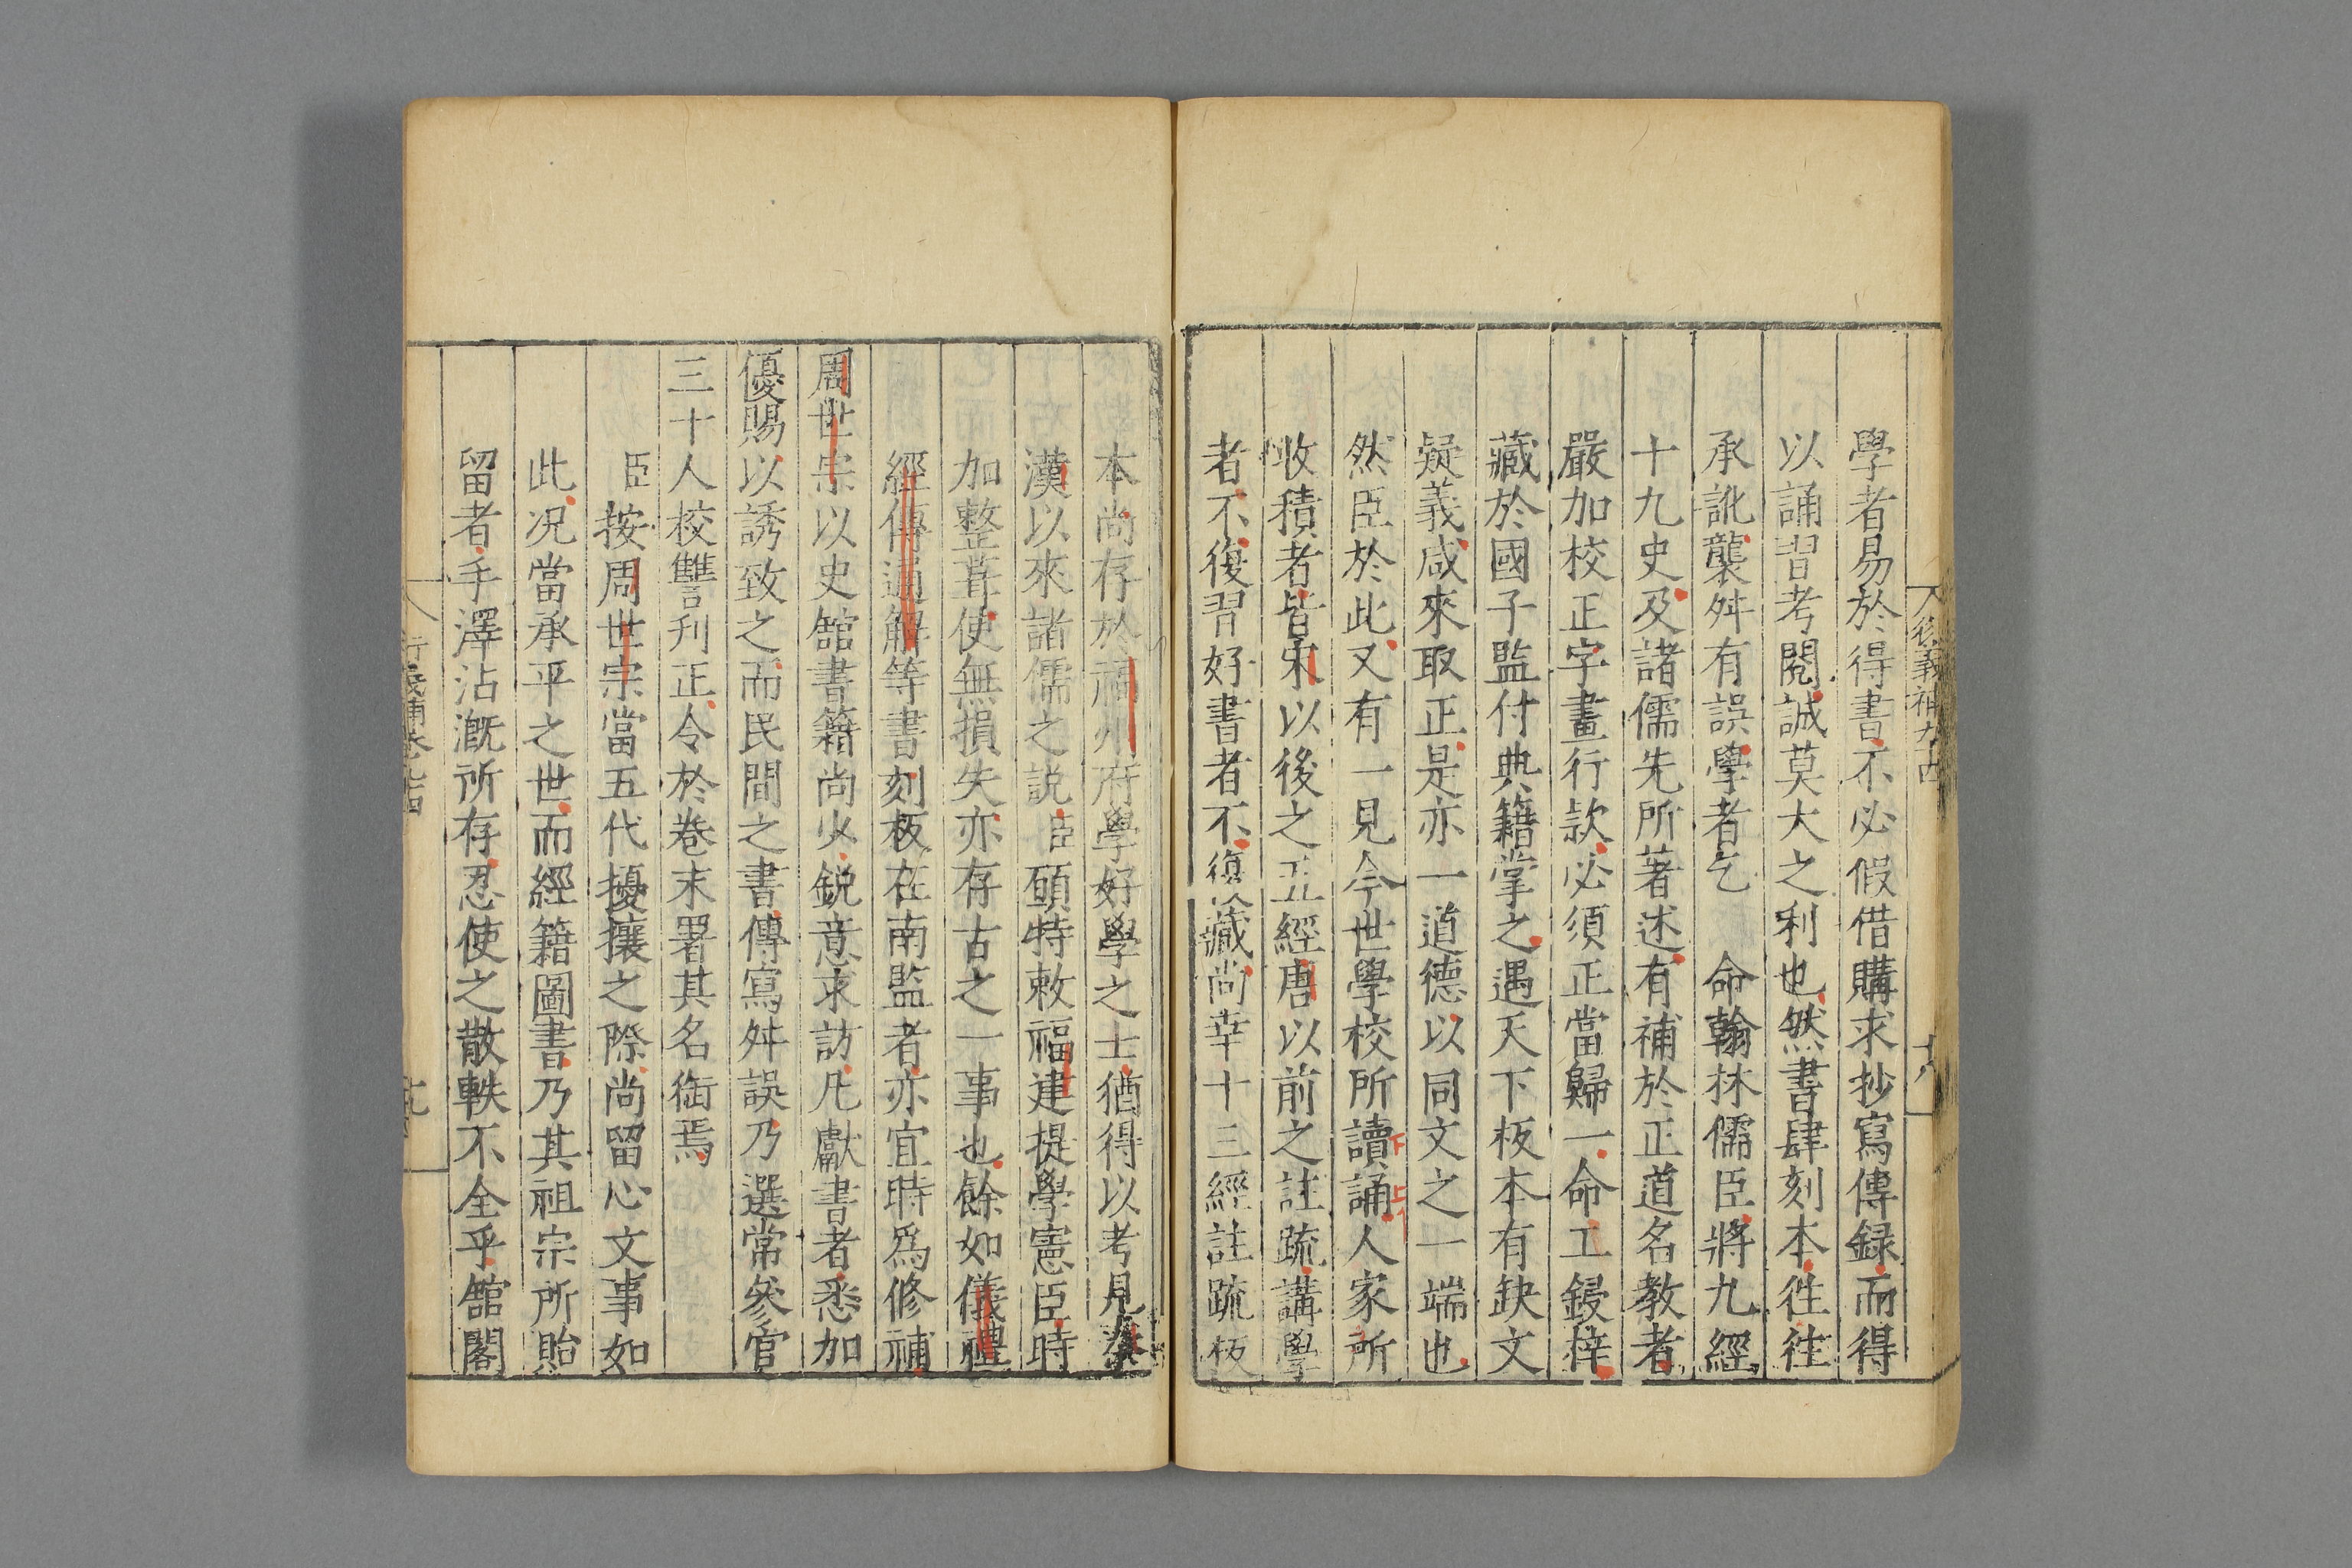 學者易於得書不必假借購求抄寫傳録而得
以誦習考閱誠莫大之利也然書肆刻本徃徃
承訛襲舛有誤學者乞 命翰林儒臣將九經
十九史及諸儒先所著述有補於正道名教者
嚴加校正字畫行欵必須正當歸一命工鋟梓
藏於國子監付典籍掌之遇天下板本有缺文
疑義咸來取正是亦一道德以同文之一端也
然臣於此又有一見今世學校所讀誦人家所
收積者皆宋以後之五經唐以前之註疏講學
者不復習好書者不復藏尚幸十三經註疏板
本尚存於福州府學好學之士猶得以考見秦
漢以來諸儒之説臣願特敕福建提學憲臣時
加整葺使無損失亦存古之一事也餘如儀禮
經傳通解等書刻板在南監者亦宜時爲修補
周世宗以史舘書籍尚少鋭意求訪凡獻書者悉加
優賜以誘致之而民間之書傳寫舛誤乃選常參官
三十人校讐刋正令於卷末署其名銜焉
臣按周世宗當五代擾攘之際尚留心文事如
此况當承平之世而經籍圖書乃其祖宗所貽
留者手澤沾漑所存忍使之散軼不全乎舘閣